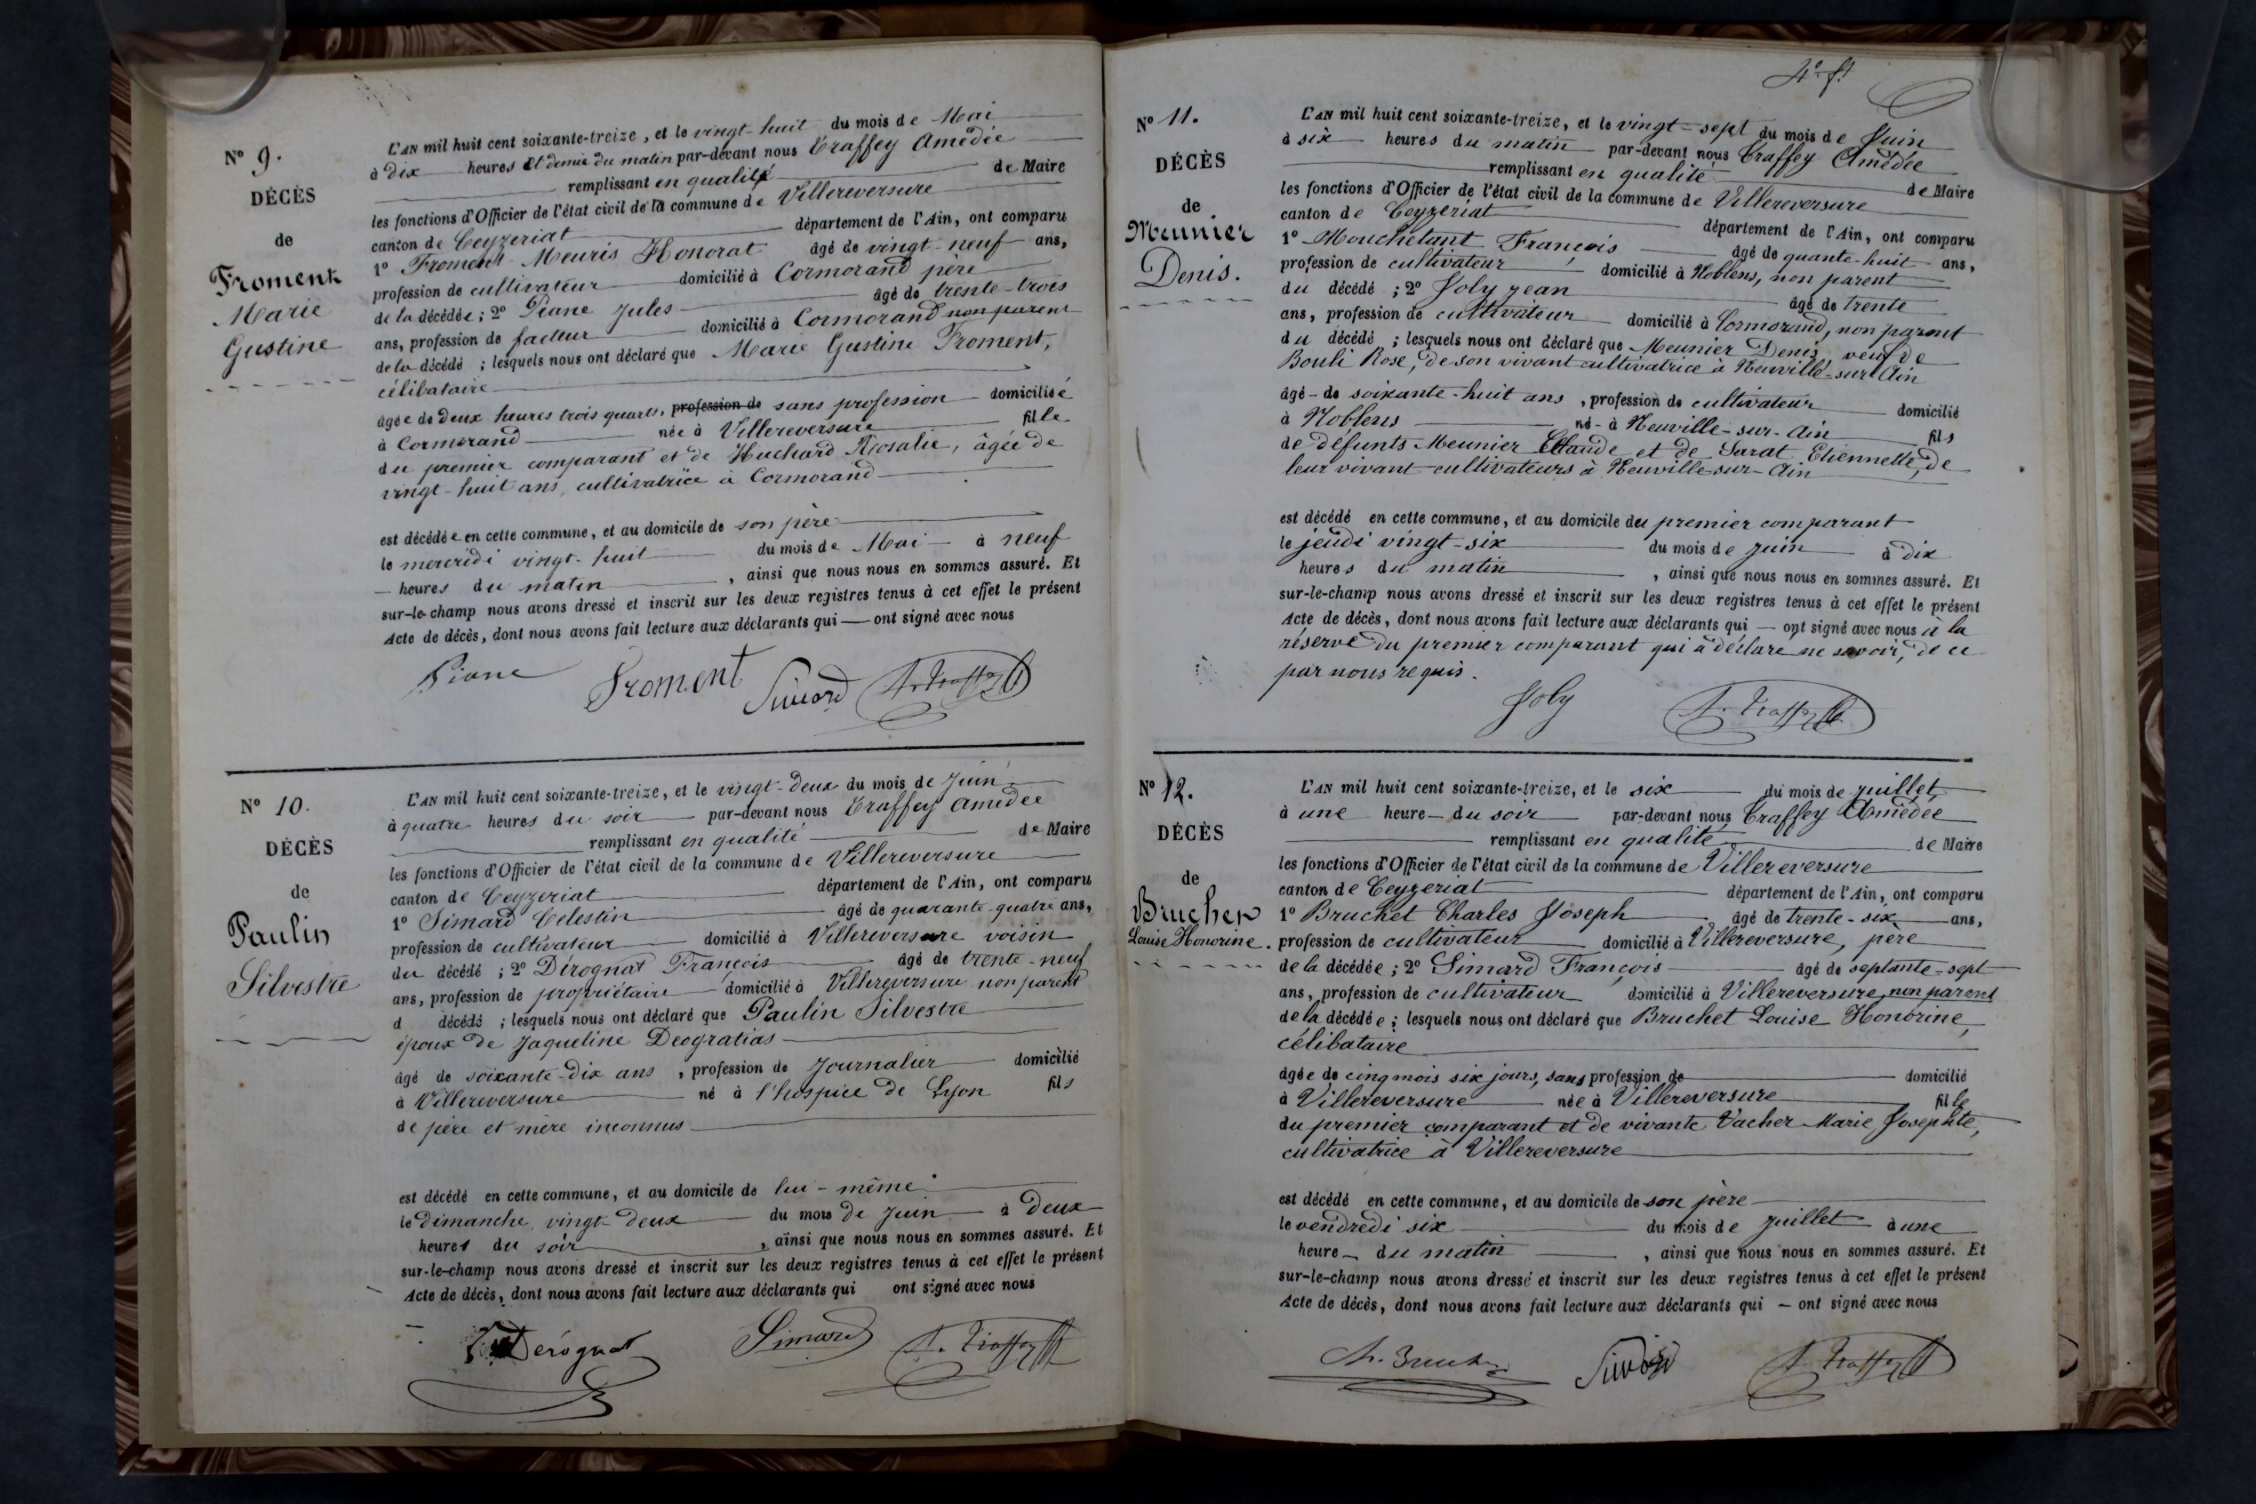 N° 9.
DÉCÈS
de
Froment
Marie
Gustine
L'AN mil huit cent soixante-treize, et le vingt-huit du mois de Mai
à dix heures et demie du matin par-devant nous Traffey Amédée
remplissant en qualité de Maire
les fonctions d'Officier de l'état civil de la commune de Villereversure
canton de Ceyzeriat département de l'Ain, ont comparu
1° Froment Meuris Honorat âgé de vingt-neuf ans,
profession de cultivateur domicilié à Cormorand père
de la décédée ; 2° Piane Jules âgé de trente-trois
ans, profession de facteur domicilié à Cormorand non parent
de la décédé ; lesquels nous ont déclaré que Marie Gustine Froment,
célibataire
âgée de deux heures trois quarts, profession de sans profession domiciliée
à Cormorand née à Villereversure fille
du premier comparant et de Huchard Rosalie, âgée de
vingt-huit ans, cultivatrice à Cormorand
est décédée en cette commune, et au domicile de son père
le mercredi vingt-huit du mois de Mai à neuf
heures du matin, ainsi que nous nous en sommes assuré. Et
sur-le-champ nous avons dressé et inscrit sur les deux registres tenus à cet effet le présent
Acte de décès, dont nous avons fait lecture aux déclarants qui ont signé avec nous
Piane Froment Simard A. Traffey
N° 10.
DÉCÈS
de
Paulin
Silvestre
L'AN mil huit cent soixante-treize, et le vingt-deux du mois de Juin
à quatre heures du soir par-devant nous Traffey Amédée
remplissant en qualité de Maire
les fonctions d'Officier de l'état civil de la commune de Villereversure
canton de Ceyzeriat département de l'Ain, ont comparu
1° Simard Célestin âgé de quarante-quatre ans,
profession de cultivateur domicilié à Villereversure voisin
du décédé ; 2° Dérognat François âgé de trente-neuf
ans, profession de propriétaire domicilié à Villereversure non parent
d décédé ; lesquels nous ont déclaré que Paulin Silvestre
époux de Jaqueline Deogratias
âgé de soixante-dix ans, profession de Journalier domicilié
à Villereversure né à l'hospice de Lyon fils
de père et mère inconnus
est décédé en cette commune, et au domicile de lui-même
le dimanche vingt-deux du mois de Juin à deux
heures du soir, ainsi que nous nous en sommes assuré. Et
sur-le-champ nous avons dressé et inscrit sur les deux registres tenus à cet effet le présent
Acte de décès, dont nous avons fait lecture aux déclarants qui ont signé avec nous
Dérognat Simard A. Traffey
4e ft
N° 11.
DÉCÈS
de
Meunier
Denis.
L'AN mil huit cent soixante-treize, et le vingt-sept du mois de Juin
à six heures du matin par-devant nous Traffey Amédée
remplissant en qualité de Maire
les fonctions d'Officier de l'état civil de la commune de Villereversure
canton de Ceyzeriat département de l'Ain, ont comparu
1° Mouchetant François âgé de quante-huit ans,
profession de cultivateur domicilié à Noblens, non parent
du décédé ; 2° Joly Jean âgé de trente
ans, profession de cultivateur domicilié à Cormorand, non parent
du décédé ; lesquels nous ont déclaré que Meunier Denis veuf de
Bouli Rose, de son vivant cultivatrice à Neuville-sur-Ain
âgé de soixante-huit ans, profession de cultivateur domicilié
à Noblens né à Neuville-sur-Ain fils
de défunts Meunier Claude et de Sarat Etiennette, de
leur vivant cultivateurs à Neuville-sur-Ain
est décédé en cette commune, et au domicile du premier comparant
le jeudi vingt-six du mois de Juin à dix
heures du matin, ainsi que nous nous en sommes assuré. Et
sur-le-champ nous avons dressé et inscrit sur les deux registres tenus à cet effet le présent
Acte de décès, dont nous avons fait lecture aux déclarants qui ont signé avec nous à la
réserve du premier comparant qui a déclaré ne savoir, de ce
par nous requis.
Joly A. Traffey
N° 12.
DÉCÈS
de
Bruchet
Louise Honorine.
L'AN mil huit cent soixante-treize, et le six du mois de juillet
à une heure du soir par-devant nous Traffey Amédée
remplissant en qualité de Maire
les fonctions d'Officier de l'état civil de la commune de Villereversure
canton de Ceyzeriat département de l'Ain, ont comparu
1° Bruchet Charles Joseph âgé de trente-six ans,
profession de cultivateur domicilié à Villereversure, père
de la décédée ; 2° Simard François âgé de septante-sept
ans, profession de cultivateur domicilié à Villereversure, non parent
de la décédée ; lesquels nous ont déclaré que Bruchet Louise Honorine,
célibataire
âgée de cinq mois six jours, sans profession de domicilié
à Villereversure née à Villereversure fille
du premier comparant et de vivante Vacher Marie Josephte,
cultivatrice à Villereversure
est décédé en cette commune, et au domicile de son père
le vendredi six du mois de juillet à une
heure du matin, ainsi que nous nous en sommes assuré. Et
sur-le-champ nous avons dressé et inscrit sur les deux registres tenus à cet effet le présent
Acte de décès, dont nous avons fait lecture aux déclarants qui ont signé avec nous
Ch. Bruchet Simard A. Traffey